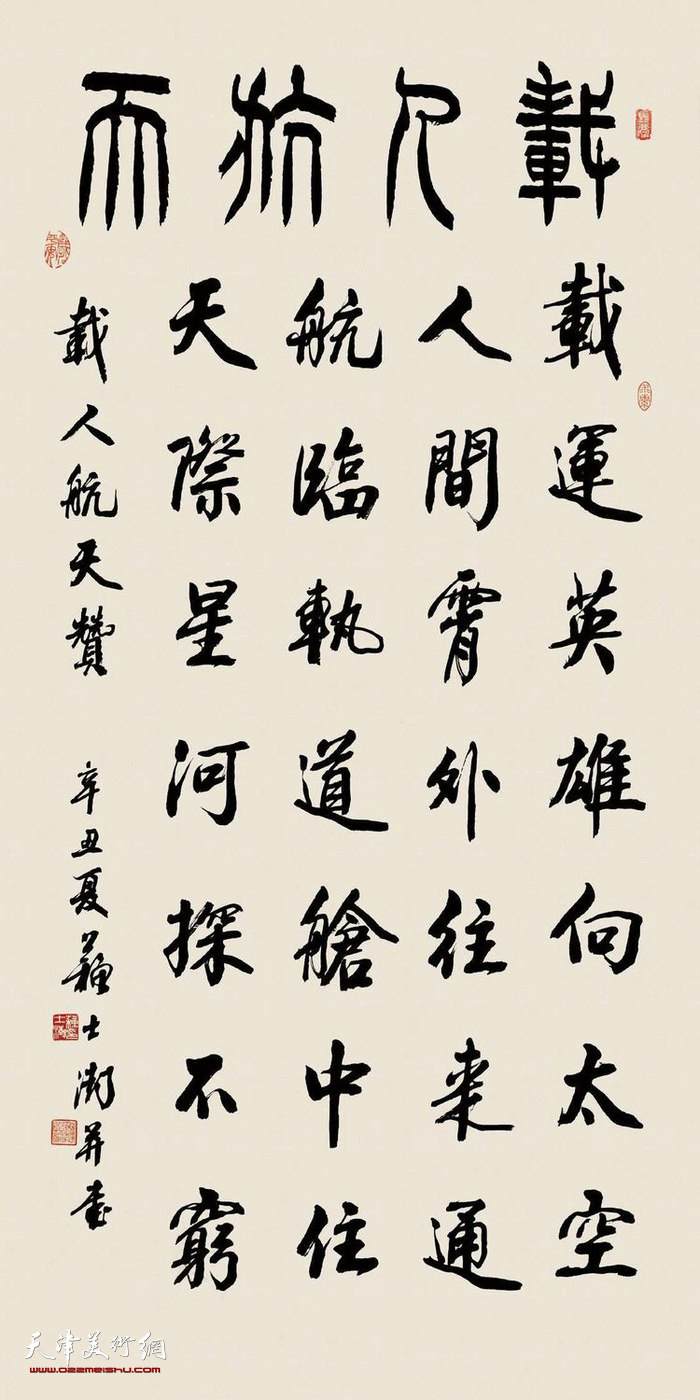 載人航天
載運英雄向太空
人間霄外往來通
航臨軌道艙中住
天際星河探不窮
載人航天贊 辛丑夏 蘇士澍并書
天津美術網
www.022meishu.com